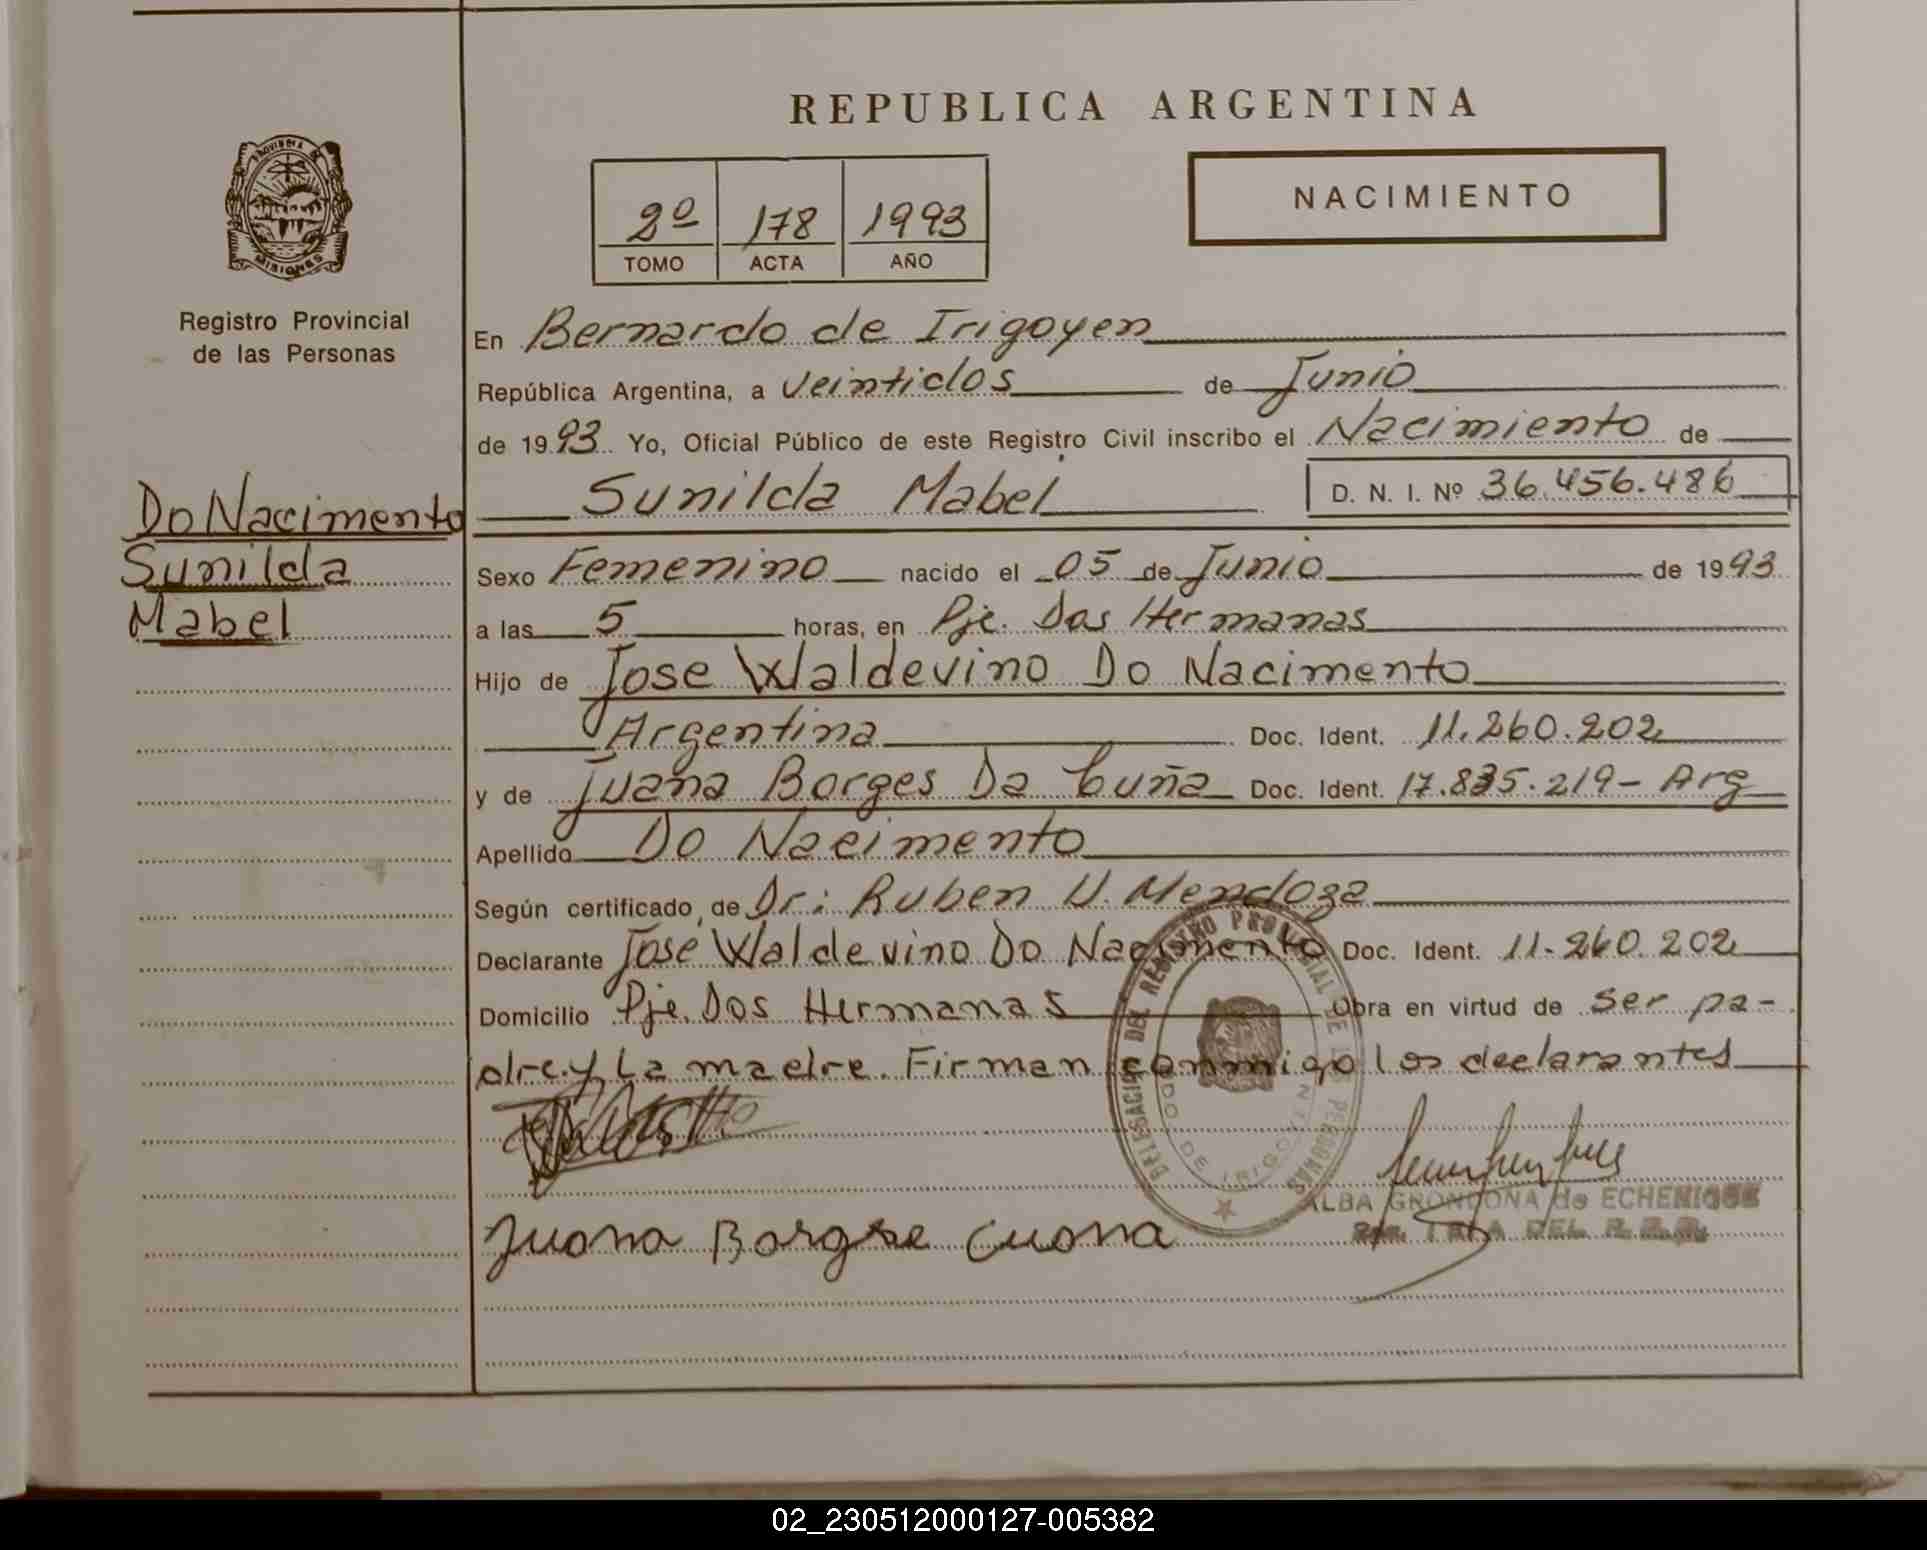 REPUBLICA ARGENTINA
PROVINCIA DE
MISIONES
Registro Provincial
de las Personas
2º 178 1993
TOMO ACTA AÑO
NACIMIENTO
En Bernardo de Irigoyen
República Argentina, a veintidos de Junio
de 1993 Yo, Oficial Público de este Registro Civil inscribo el Nacimiento de
Sunilda Mabel D. N. I. Nº 36.456.486
Do Nacimento
Sunilda
Mabel
Sexo Femenino nacido el 05 de Junio de 1993
a las 5 horas, en Pje. Dos Hermanas
Hijo de Jose Waldevino Do Nacimento
Argentina Doc. Ident. 11.260.202
y de Juana Borges Da Cuña Doc. Ident. 17.835.219- Arg
Apellido Do Nacimento
Según certificado de Dr: Ruben U. Mendoza
Declarante Jose Waldevino Do Nacimento Doc. Ident. 11-260.202
Domicilio Pje. Dos Hermanas Obra en virtud de ser pa-
dre y La madre. Firman conmigo los declarantes
DELEGACION DEL REGISTRO PROVINCIAL DE LAS PERSONAS
DO DE IRIGOYEN
ALBA GRONDONA de ECHENIQUE
Juana Borgse Cuona
02_230512000127-005382